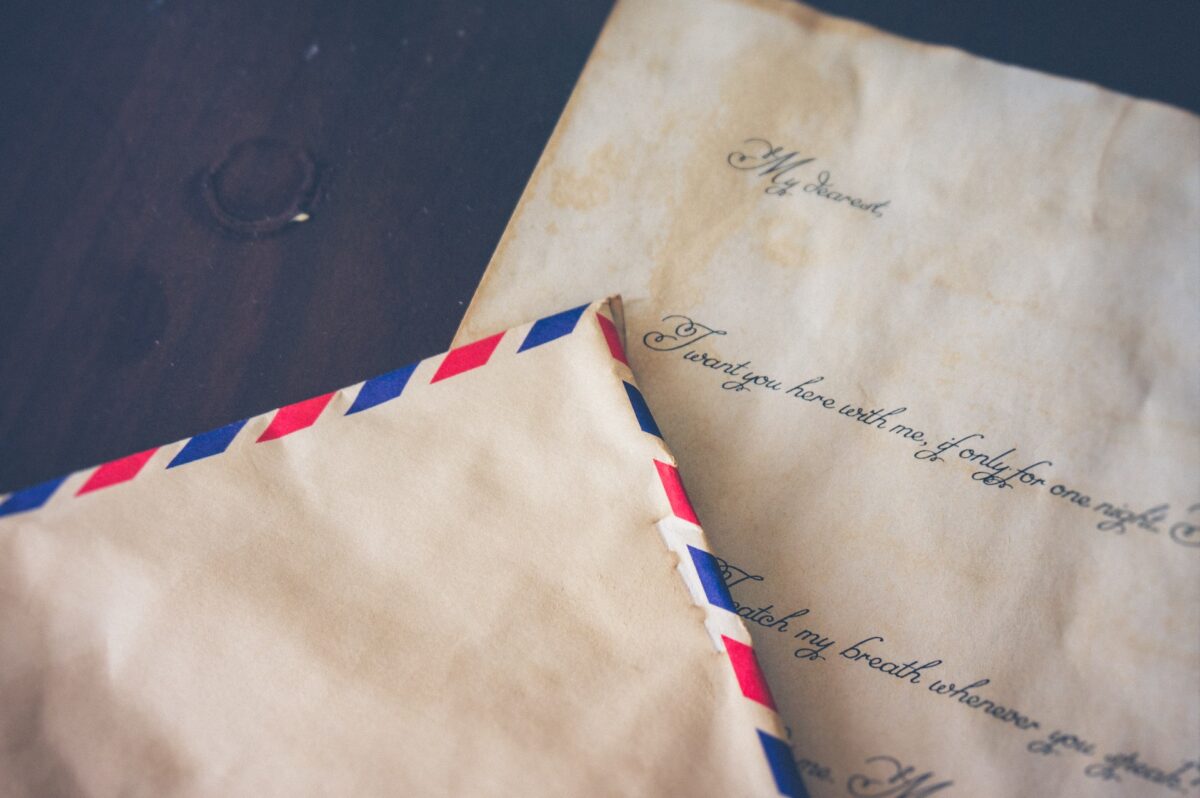 My dearest,
I want you here with me, if only for one night.
I catch my breath whenever you speak.
me. M